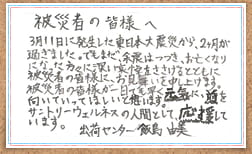 被災者の皆様へ
3月11日に発生した東日本大震災から、2ヶ月が
過ぎました。でもまだ、余震はつづき、お亡くなりに
なった方々に深い哀悼をささげるとともに
被災者の皆様に、お見舞いを申し上げます。
被災者の皆様が一日でも早く元気に、道を
向いていってほしいと想います。
サントリーウェルネスの人間として、応援して
います。
出荷センター 飯島 由美